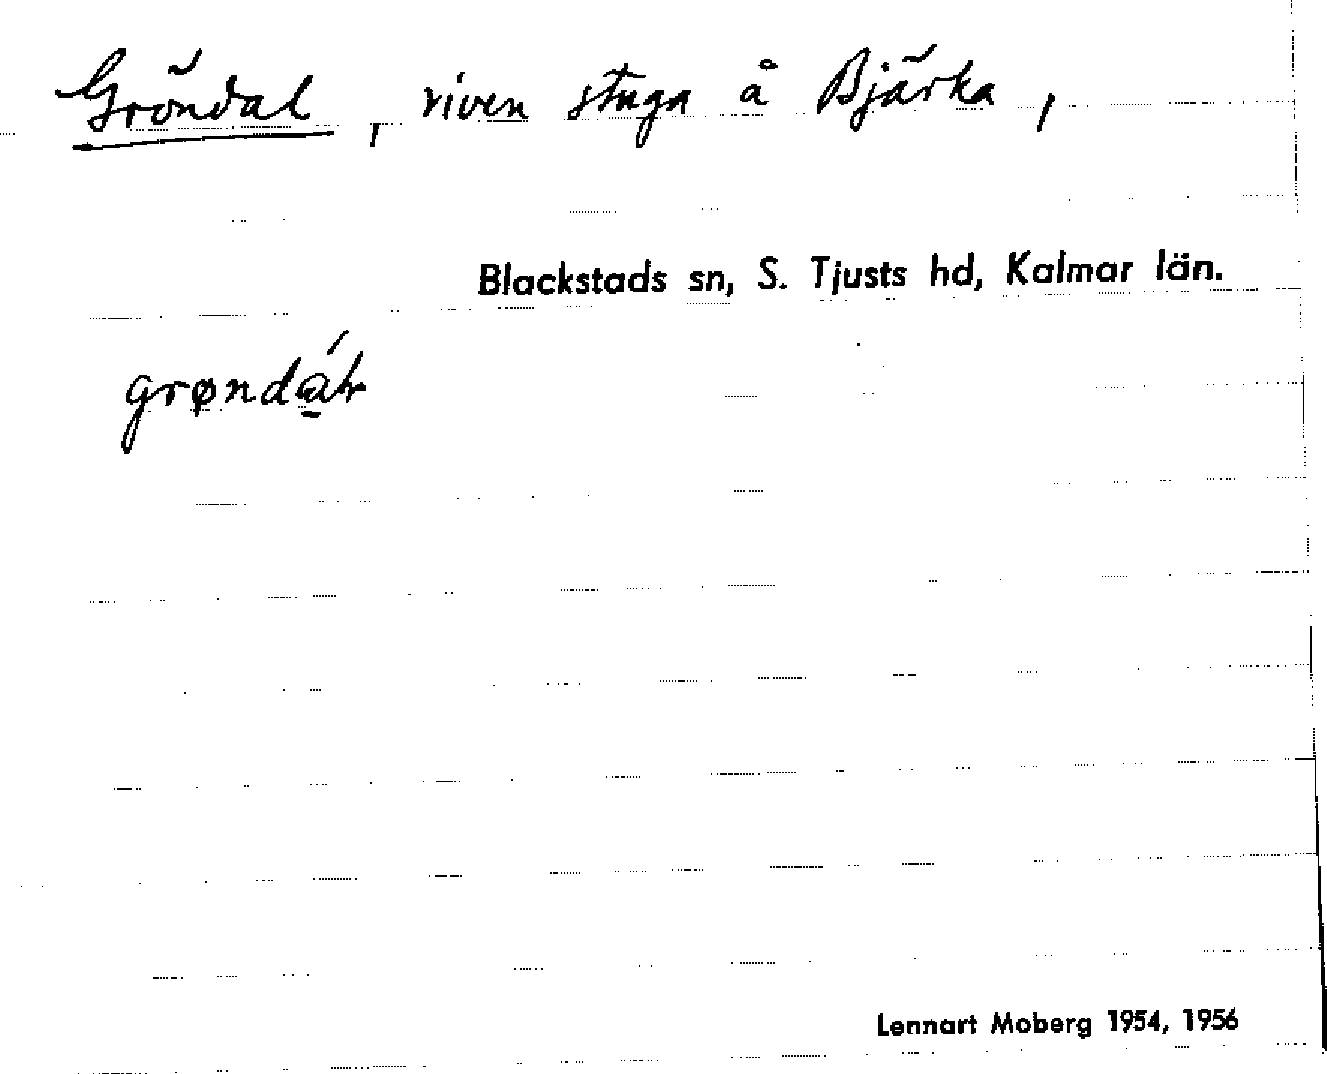 Gröndal, riven stuga å Bjärka,
Blackstads sn, S. Tjusts hd, Kalmar län.
grøndáḷ
Lennart Moberg 1954, 1956